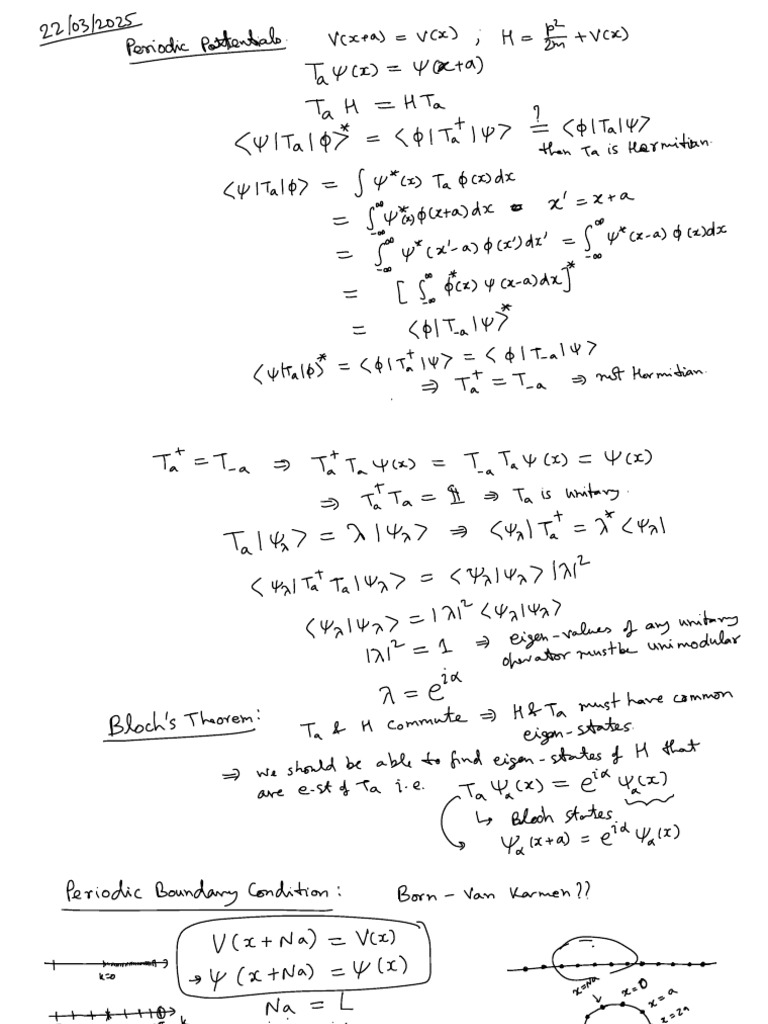 22/03/2025
Periodic Potentials. V(x+a) = V(x) ; H = p²/2m + V(x)
Tₐ ψ(x) = ψ(x+a)
Tₐ H = H Tₐ
⟨ψ|Tₐ|φ⟩* = ⟨φ|Tₐ†|ψ⟩ =? ⟨φ|Tₐ|ψ⟩
then Tₐ is Hermitian.
⟨ψ|Tₐ|φ⟩ = ∫ ψ*(x) Tₐ φ(x) dx
= ∫_{-∞}^{∞} ψ*(x) φ(x+a) dx x' = x+a
= ∫_{-∞}^{∞} ψ*(x'-a) φ(x') dx' = ∫_{-∞}^{∞} ψ*(x-a) φ(x) dx
= [∫_{-∞}^{∞} φ*(x) ψ(x-a) dx]*
= ⟨φ|T₋ₐ|ψ⟩*
⟨ψ|Tₐ|φ⟩* = ⟨φ|Tₐ†|ψ⟩ = ⟨φ|T₋ₐ|ψ⟩
⇒ Tₐ† = T₋ₐ ⇒ not Hermitian.
Tₐ† = T₋ₐ ⇒ Tₐ† Tₐ ψ(x) = T₋ₐ Tₐ ψ(x) = ψ(x)
⇒ Tₐ† Tₐ = 𝟙 ⇒ Tₐ is unitary.
Tₐ|ψ_λ⟩ = λ|ψ_λ⟩ ⇒ ⟨ψ_λ|Tₐ† = λ* ⟨ψ_λ|
⟨ψ_λ|Tₐ† Tₐ|ψ_λ⟩ = ⟨ψ_λ|ψ_λ⟩ |λ|²
⟨ψ_λ|ψ_λ⟩ = |λ|² ⟨ψ_λ|ψ_λ⟩
|λ|² = 1 ⇒ eigen-values of any unitary
operator must be unimodular
λ = e^{iα}
Bloch's Theorem: Tₐ & H commute ⇒ H & Tₐ must have common
eigen-states.
⇒ We should be able to find eigen-states of H that
are e-st of Tₐ i.e. Tₐ ψ_α(x) = e^{iα} ψ_α(x)
↳ Bloch states
ψ_α(x+a) = e^{iα} ψ_α(x)
Periodic Boundary Condition: Born - Van Karmen??
V(x+Na) = V(x)
→ ψ(x+Na) = ψ(x)
Na = L
k=0
k
x=Na
x=0
x=a
x=2a